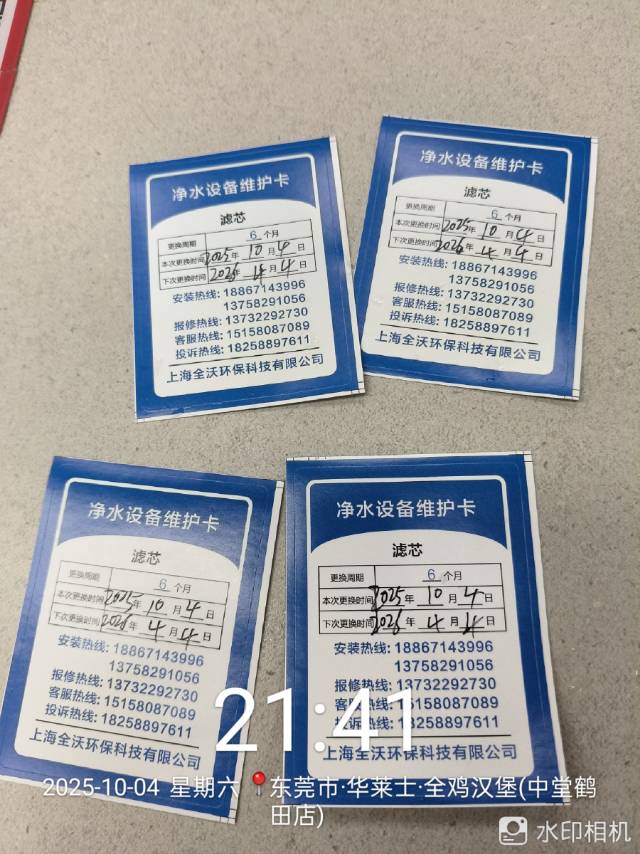 净水设备维护卡
滤芯
更换周期 6 个月
本次更换时间 2025年 10 月 4 日
下次更换时间 2026年 4 月 4 日
安装热线: 18867143996
13758291056
报修热线: 13732292730
客服热线: 15158087089
投诉热线: 18258897611
上海全沃环保科技有限公司
净水设备维护卡
滤芯
更换周期 6 个月
本次更换时间 2025年 10 月 4 日
下次更换时间 2026年 4 月 4 日
安装热线: 18867143996
13758291056
报修热线: 13732292730
客服热线: 15158087089
投诉热线: 18258897611
上海全沃环保科技有限公司
净水设备维护卡
滤芯
更换周期 6 个月
本次更换时间 2025年 10 月 4 日
下次更换时间 2026年 4 月 4 日
安装热线: 18867143996
13758291056
报修热线: 13732292730
客服热线: 15158087089
投诉热线: 18258897611
上海全沃环保科技有限公司
净水设备维护卡
滤芯
更换周期 6 个月
本次更换时间 2025年 10 月 4 日
下次更换时间 2026年 4 月 4 日
安装热线: 18867143996
13758291056
报修热线: 13732292730
客服热线: 15158087089
投诉热线: 18258897611
上海全沃环保科技有限公司
21:41
2025-10-04 星期六 东莞市·华莱士·全鸡汉堡(中堂鹤
田店)
水印相机